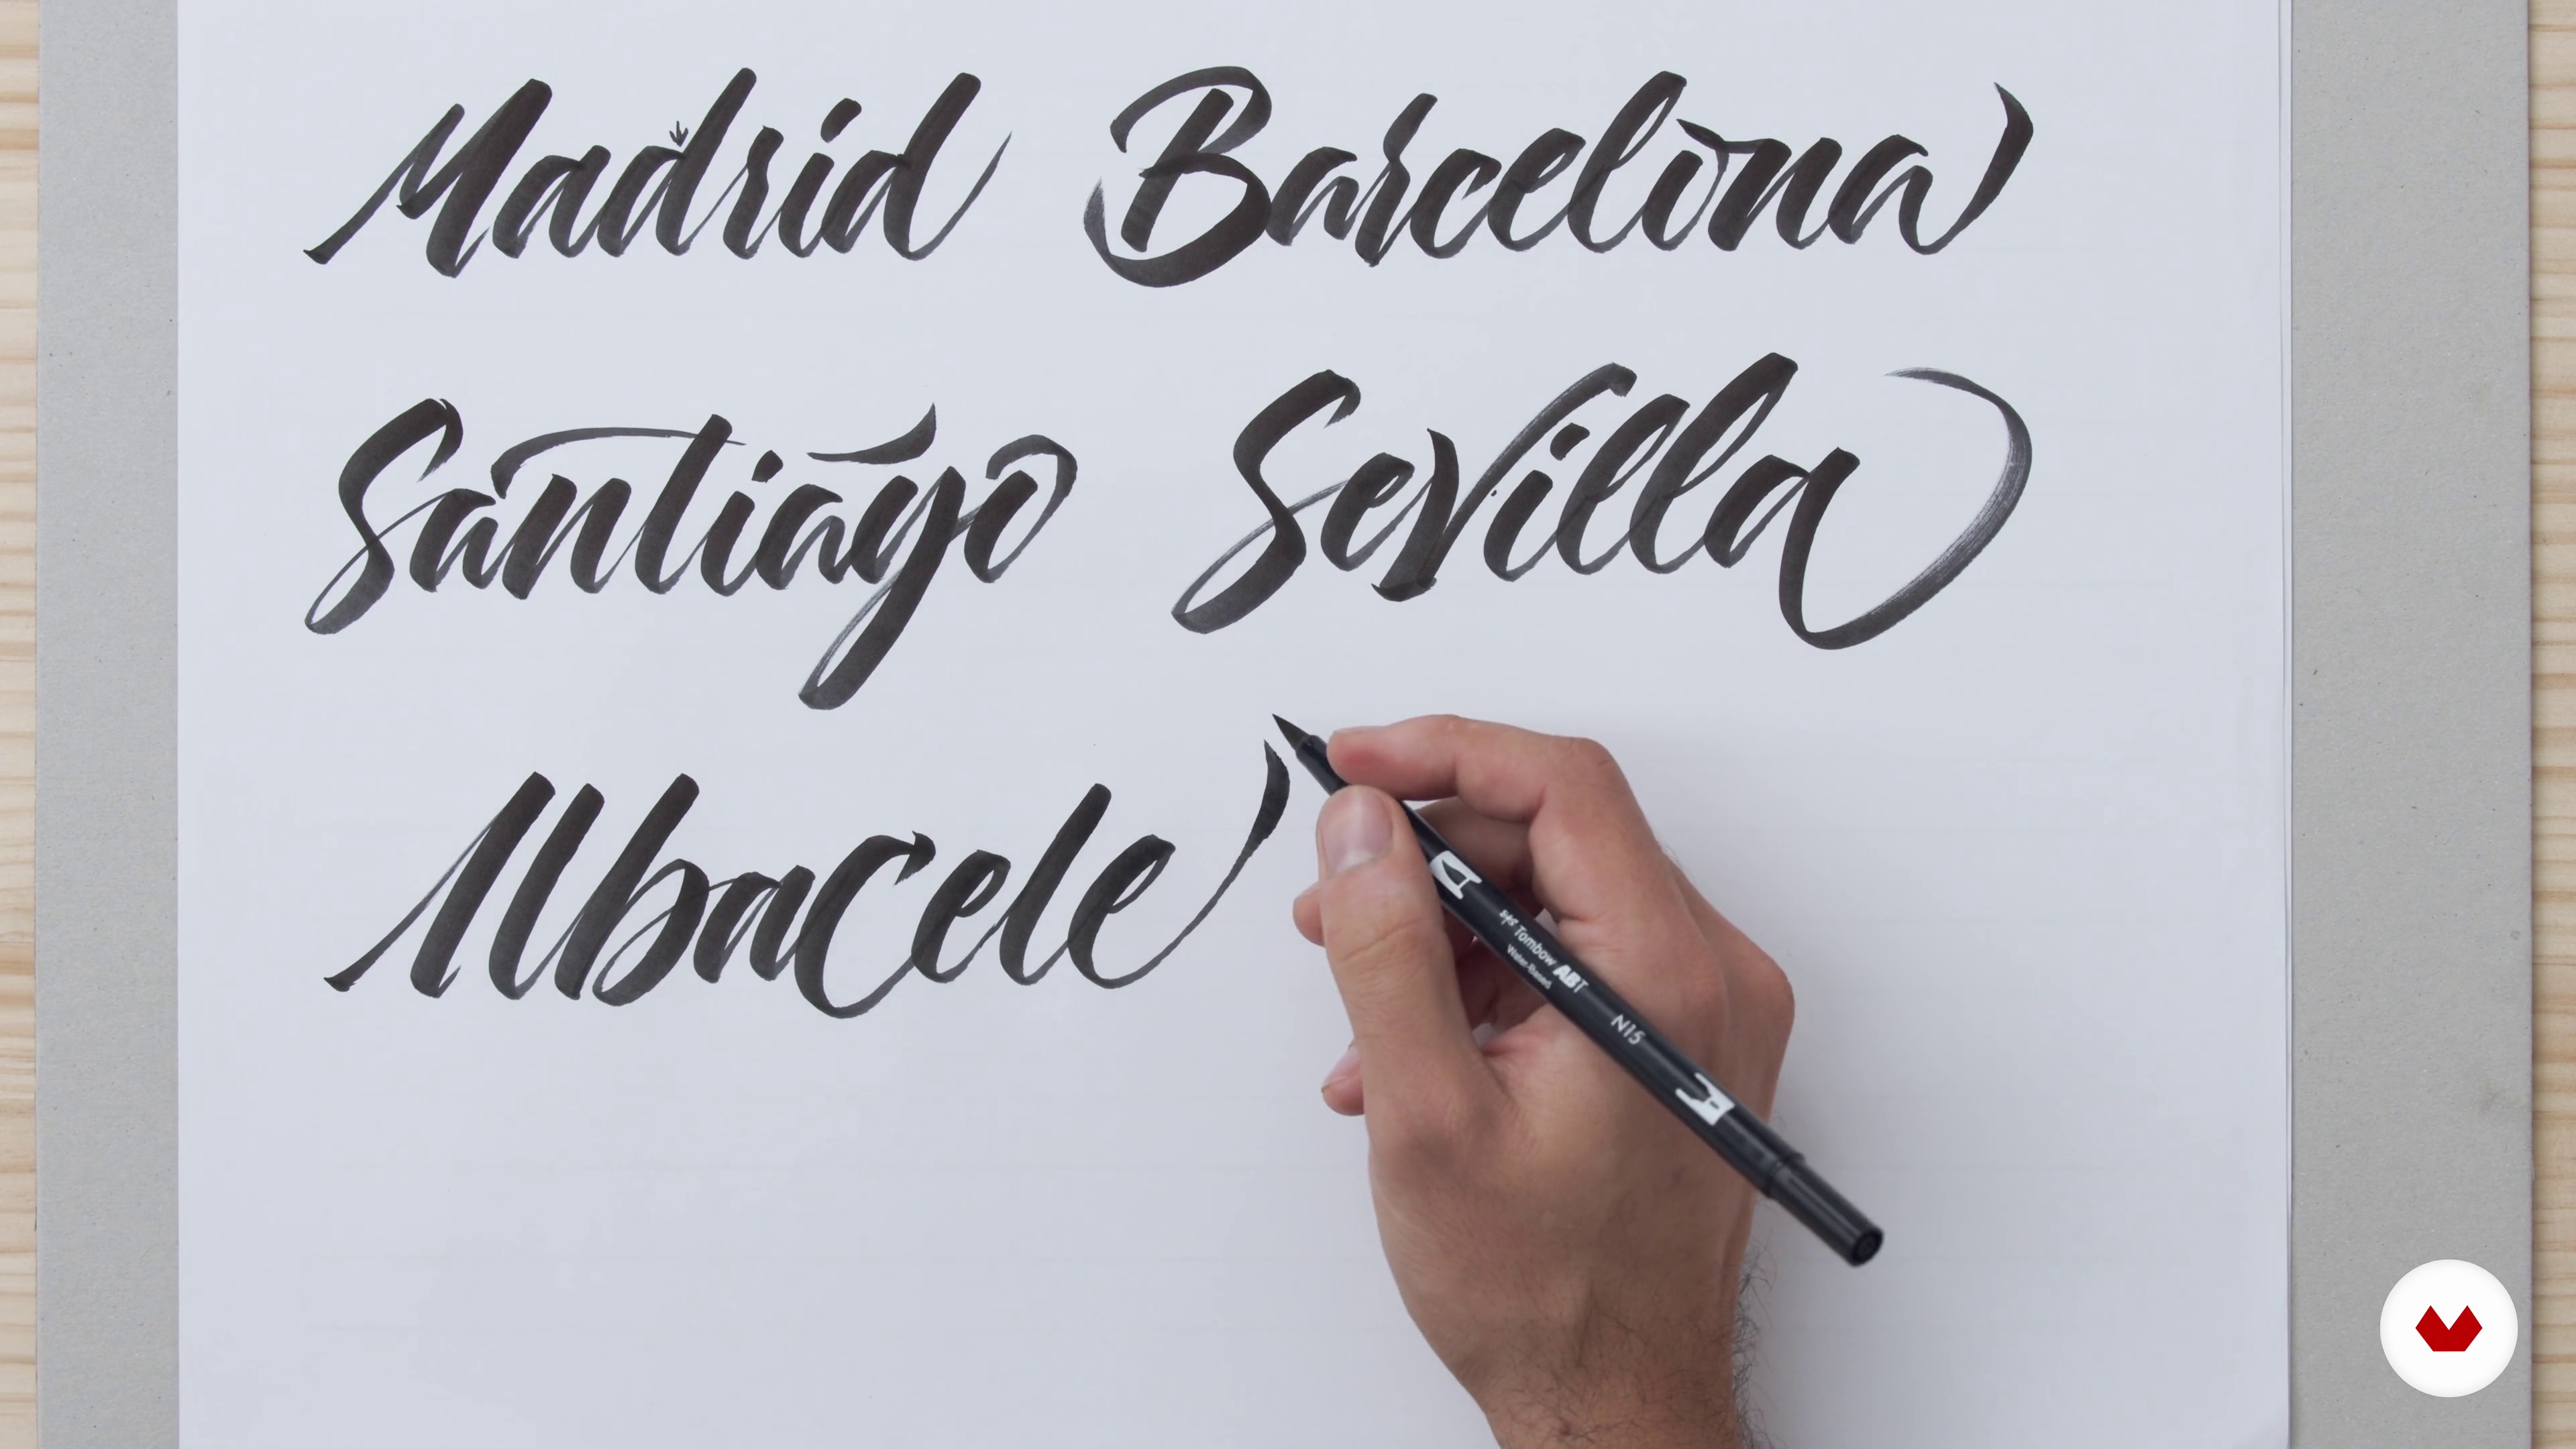 Madrid Barcelona
Santiago Sevilla
Albacete
Tombow ABT
Water-Based
N15